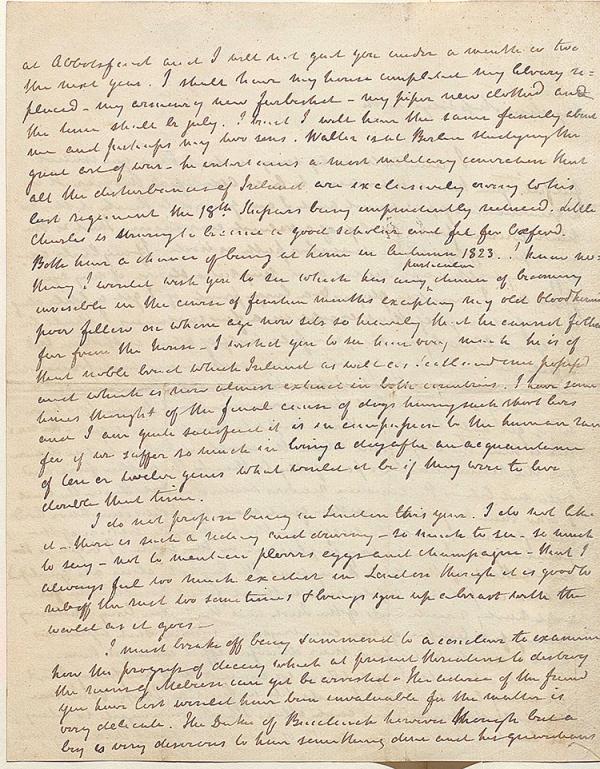 at Abbotsford and I will not quit you under a month or two
the next year. I shall have my house completed my library re=
placed – my armoury new furbished – my piper new clothed and
the time shall be July. I trust I will have the same family about
me and perhaps my two sons. Walter is at Berlin studying the
great art of war – he entertains a most military conviction that
all the disturbances of Ireland are exclusively owing to his
last regiment the 18th Hussars being imprudently reduced. Little
Charles is striving to become a good scholar and fit for Oxford.
Both have a chance of being at home in autumn 1823. I know no=
thing I would wish you to see which has any particular chance of becoming
invisible in the course of fourteen months excepting my old bloodhound
poor fellow on whom age now sits so heavily that he cannot follow
far from the house – I wished you to see him very much he is of
that noble breed which Ireland as well as Scotland once possessed
and which is now almost extinct in both countries. I have some
times thought of the final cause of dogs having such short lives
and I am quite satisfied it is in compassion to the human race
for if we suffer so much in losing a dog after an acquaintance
of ten or twelve years what would it be if they were to live
double that time.
I do not propose being in London this year. I do not like
it – there is such a riding and driving – so much to see – so much
to say – not to mention plovers eggs and champagne – that I
always feel too much excited in London though it is good to
rub off the rust too sometimes & brings you up abreast with the
world as it goes –
I must break off being summoned to a conclave to examine
how the progress of decay which at present threatens to destroy
the ruins of Melrose can yet be arrested – The advice of the friend
you have lost would have been invaluable for the matter is
very delicate. The Duke of Buccleuch however though but a
boy is very desirous to have something done and his guardians